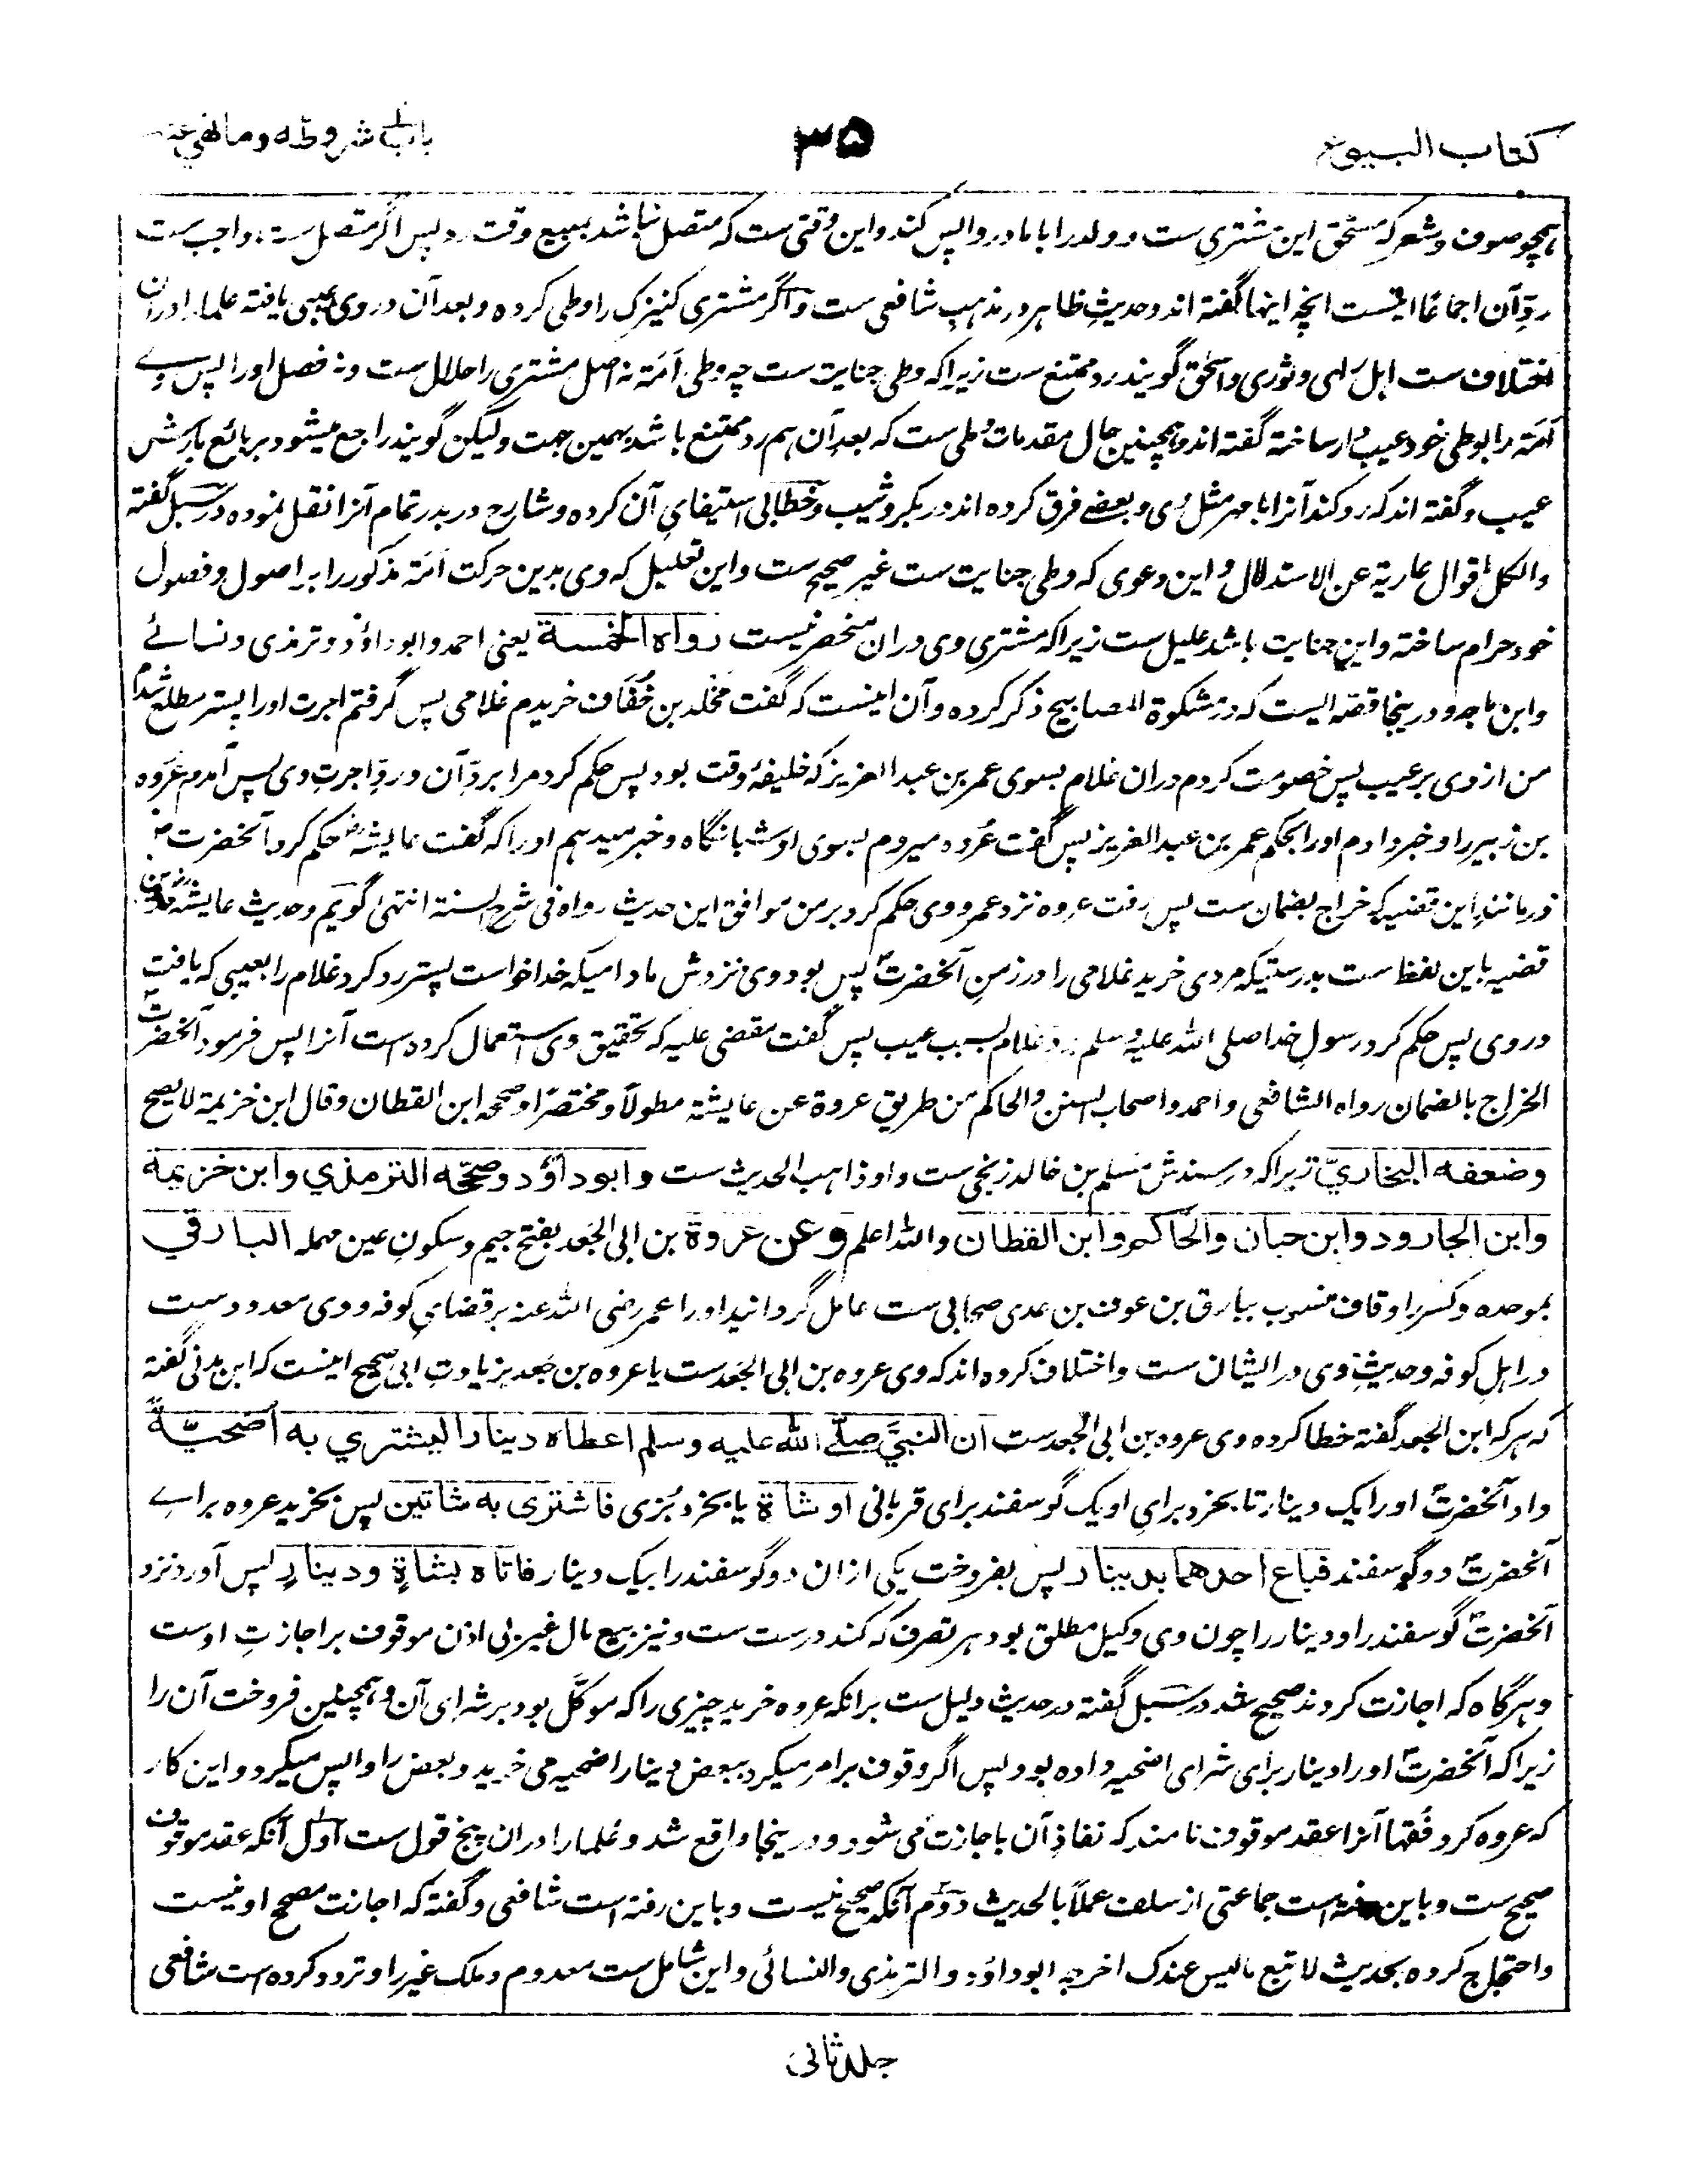 کتاب البیوع
۳۵
باب شروطه وما نهي عنه
همچو صوف و شعر که مستحق این مشتری ست و ولد را با مادر واپس کند و این وقتی ست که متصل نباشد ببیع وقت رد پس اگر متصل ست واجب ست
ردِّ آن اجماعًا اینست انچه اینها گفته اند و حدیثِ ظاهر در مذهبِ شافعی ست و اگر مشتری کنیزک را وطی کرده و بعد آن در وی عیبی یافته علما را دران
اختلاف ست اهل رای و ثوری و اسحٰق گویند رد ممتنع ست زیراکه وطی جنایت ست چه وطی اَمَة نه اصل مشتری را حلال ست و نه فصل او را پس وے
اَمَة را بوطی خود عیب دار ساخته گفته اند و همچنین حال مقدمات وطی ست که بعد آن هم رد ممتنع باشد بهمین جهت ولیکن گویند راجع میشود بر بائع بارش
عیب و گفته اند که رد کند آنرا با مهر مثل وی و بعضے فرق کرده اند در بکر و ثیب و خطابی استیفایِ آن کرده و شارح در بدر تمام آنرا نقل نموده در سبل گفته
والکل اقوال عاریة عن الاستدلال و این دعوی که وطی جنایت ست غیر صحیح ست و این تعلیل که وی بدین حرکت اَمَة مذکور را بر اصول و فصول
خود حرام ساخته و این جنایت باشد علیل ست زیراکه مشتری وی دران منحصر نیست رواه الخمسة یعنی احمد و ابوداؤد و ترمذی و نسائے
و ابن ماجه و درینجا قصّه ایست که در مشکوة المصابیح ذکر کرده و آن اینست که گفت مخلد بن خُفَاف خریدم غلامی پس گرفتم اجرت او را پستر مطلع شدم
من از وی بر عیب پس خصومت کردم دران غلام بسوی عمر بن عبد العزیز که خلیفهٔ وقت بود پس حکم کرد مرا بردِّ آن و ردِّ اجرتِ وی پس آمدم عُروه
بن زبیر را و خبر دادم او را بحکم عمر بن عبد العزیز پس گفت عُروه میروم بسوی او شبانگاه و خبر میدهم او را که گفت عایشه رض حکم کرد آنحضرت ص
در مانندِ این قضیه که خراج بضمان ست پس رفت عروه نزد عمر و وی حکم کرد بر من موافق این حدیث رواه فی شرح السنة انتهیٰ گویم و حدیث عایشه رض درین
قضیه باین لفظ ست بدرستیکه مردی خرید غلامی را در زمنِ آنحضرت ص پس بود وی نزدش مادامیکه خدا خواست پستر رد کرد غلام را بعیبی که یافت
در وی پس حکم کرد رسول خدا صلی الله علیه وسلم بردِ غلام بسبب عیب پس گفت مقضی علیه که تحقیق وی استعمال کرده است آنرا پس فرمود آنحضرت ص
الخراج بالضمان رواه الشافعی و احمد و اصحاب السنن والحاکم من طریق عروة عن عایشة مطولًا و مختصرًا و صححه ابن القطان و قال ابن خزیمة لا یصح
وضعفه البخاريّ زیراکه در سندش مسلم بن خالد زنجی ست و او ذاهب الحدیث ست وابوداؤد وصححه الترمذي وابن خزیمة
وابن الجارود وابن حبان والحاکم وابن القطان والله اعلم وعن عروة بن ابی الجَعد بفتح جیم و سکونِ عین مهمله البارقي
بموحده و کسر را و قاف منسوب ببارق بن عوف بن عدی صحابی ست عامل گردانید او را عمر رضی الله عنه بر قضایِ کوفه و وی معدود ست
در اهلِ کوفه و حدیثِ وی در ایشان ست و اختلاف کرده اند که وی عروه بن ابی الجَعد ست یا عروه بن جَعد بزیادتِ ابی صحیح اینست که ابن مدنی گفته
که هر که ابن الجعد گفته خطا کرده وی عروه بن ابی الجعد ست ان النبيَّ صلے الله علیه وسلم اعطاه دینارا لیشتري به اضحیّةً
داد آنحضرت ص او را یک دینار تا بخرد برایِ او یک گوسفند برای قربانی او شاة یا بخرد بُزی فاشتری به شاتین پس بخرید عروه براے
آنحضرت ص دو گوسفند فباع احدهما بدینار پس بفروخت یکی ازان دو گوسفند را بیک دینار فاتاه بشاةٍ ودینارٍ پس آورد نزد
آنحضرت ص گوسفند را و دینار را چون وی وکیل مطلق بود هر تصرف که کند درست ست و نیز بیع مال غیر بی اذن موقوف بر اجازتِ اوست
و هرگاه که اجازت کردند صحیح شد در سبل گفته در حدیث دلیل ست برانکه عروه خرید چیزی را که موکَّل بود بر شرای آن و همچنین فروخت آن را
زیراکه آنحضرت ص او را دینار برای شرای اضحیه داده بود پس اگر وقوف بر امر میکرد ببعض دینار اضحیه می خرید و بعض را واپس میکرد و این کار
که عروه کرد فُقها آنرا عقد موقوف نامند که نفاذِ آن باجازت می شود و درینجا واقع شد و عُلما را دران پنج قول ست اول آنکه عقد موقوف
صحیح ست و باین رفته است جماعتی از سلف عملًا بالحدیث دوّم آنکه صحیح نیست و باین رفته است شافعی و گفته که اجازت مصحح او نیست
و احتجاج کرده بحدیث لا تبع ما لیس عندک اخرجه ابوداؤد و الترمذی والنسائی و این شامل ست معدوم و ملک غیر را و تردد کرده است شافعی
جلد ثانی